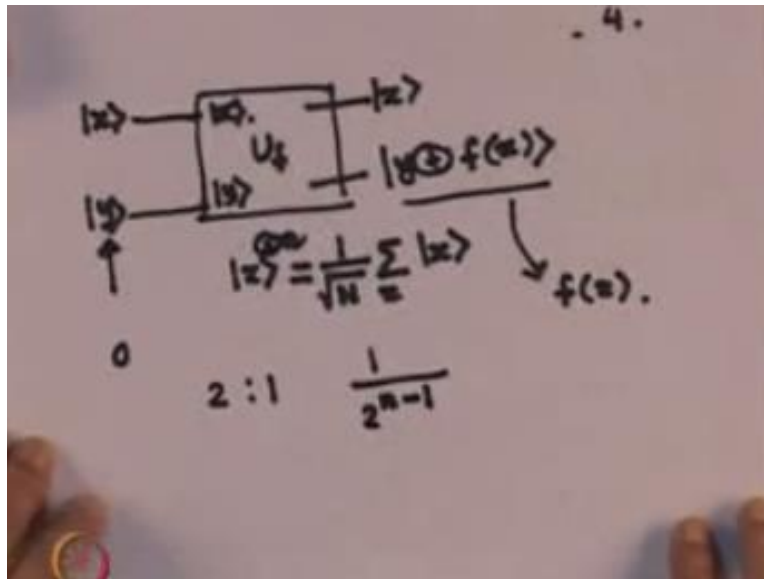 . 4 .
|x⟩ |x⟩. |x⟩
U_f
|y⟩ |y⟩ |y ⊕ f(x)⟩
|x⟩^{⊗n} = \frac{1}{\sqrt{N}} \sum_x |x⟩
f(x).
0
2 : 1 \frac{1}{2^{n-1}}